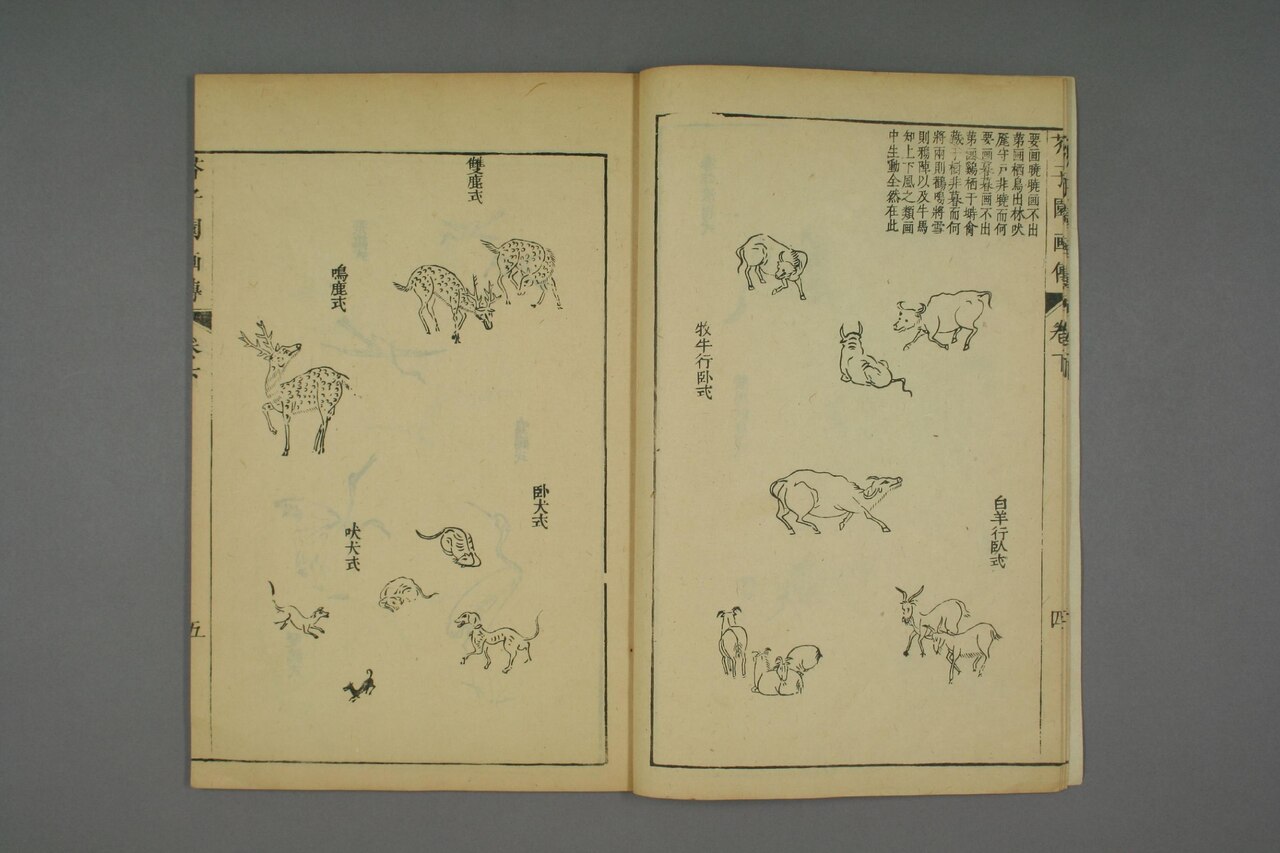 芥子園画傳
卷下
四
要画曉曉画不出
第画栖鳥出林吠
厖守戸非曉而何
要画暮暮画不出
第画鷄栖于塒禽
于 暮而何
將雨則鸛鳴將雪
則鴉陣以及牛馬
知上下風之類画
中生動全然在此
白羊行臥式
牧牛行卧式
卧犬式
雙鹿式
吠犬式
鳴鹿式
芥子園画傳
五